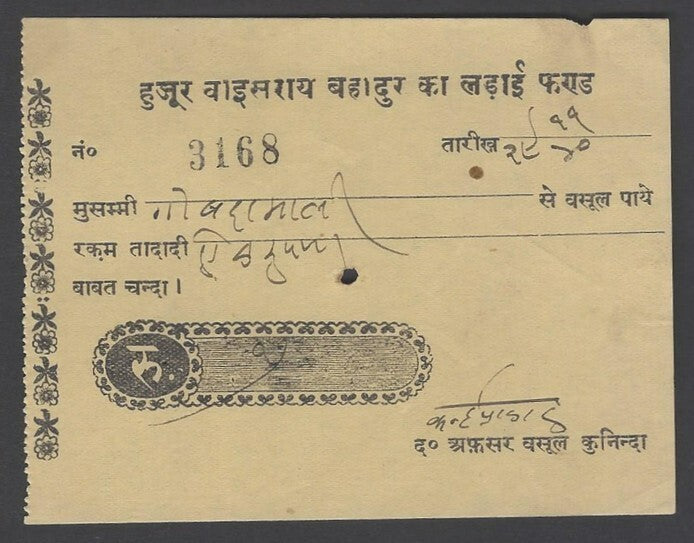 हुजूर वाइसराय बहादुर का लड़ाई फण्ड
नं० 3168 तारीख २९ ११ ४०
मुसम्मी से वसूल पाये
रक़म तादादी
बाबत चन्दा।
रु. १)
द० अफ़सर वसूल कुनिन्दा